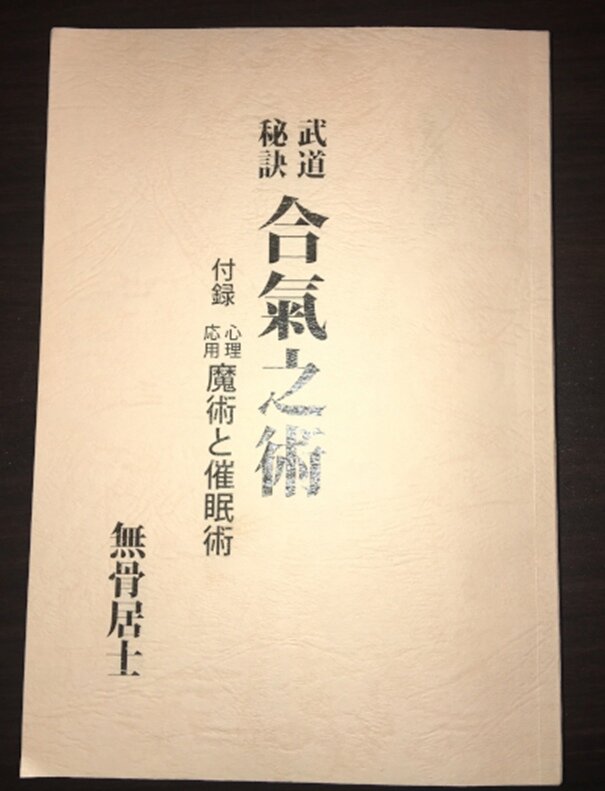 武道秘訣 合氣之術
付録 心理応用 魔術と催眠術
無骨居士